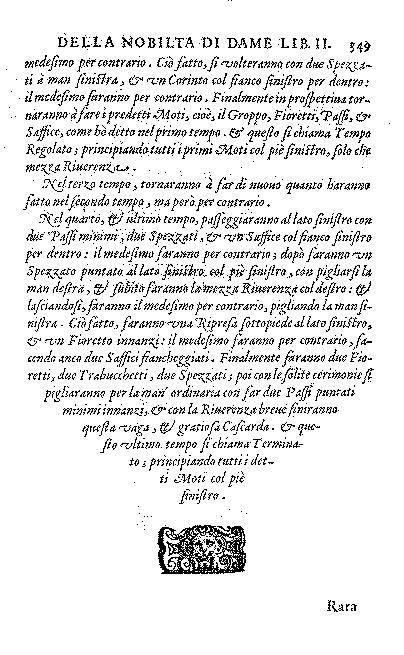 DELLA NOBILTA DI DAME LIB. II. 349
medesimo per contrario. Ciò fatto, si volteranno con due Spezza-
ti à man sinistra, & vn Corinto col fianco sinistro per dentro:
il medesimo faranno per contrario. Finalmente in prospettiua tor-
naranno à fare i predetti Moti, cioè, il Groppo, Fioretti, Passi, &
Saffice, come hò detto nel primo tempo. & questo si chiama Tempo
Regolato; principiando tutti i primi Moti col piè sinistro, solo che
mezza Riuerenza.
Nel terzo tempo, tornaranno à far di nuouo quanto haranno
fatto nel secondo tempo, ma però per contrario.
Nel quarto, & vltimo tempo, passeggiaranno al lato sinistro con
due Passi minimi, due Spezzati, & vn Saffice col fianco sinistro
per dentro: il medesimo faranno per contrario; dopò faranno vn
Spezzato puntato al lato sinistro col piè sinistro, con pigliarsi la
man destra, & subito faranno la mezza Riuerenza col destro: &
lasciandosi, faranno il medesimo per contrario, pigliando la man si-
nistra. Ciò fatto, faranno vna Ripresa sottopiede al lato sinistro,
& vn Fioretto innanzi: il medesimo faranno per contrario, fa-
cendo anco due Saffici fiancheggiati. Finalmente faranno due Fio-
retti, due Trabucchetti, due Spezzati; poi con le solite cerimonie si
pigliaranno per la man' ordinaria con far due Passi puntati
minimi innanzi, & con la Riuerenza breue finiranno
questa vaga, & gratiosa Cascarda. & que-
sto vltimo tempo si chiama Termina-
to; principiando tutti i det-
ti Moti col piè
sinistro.
Rara